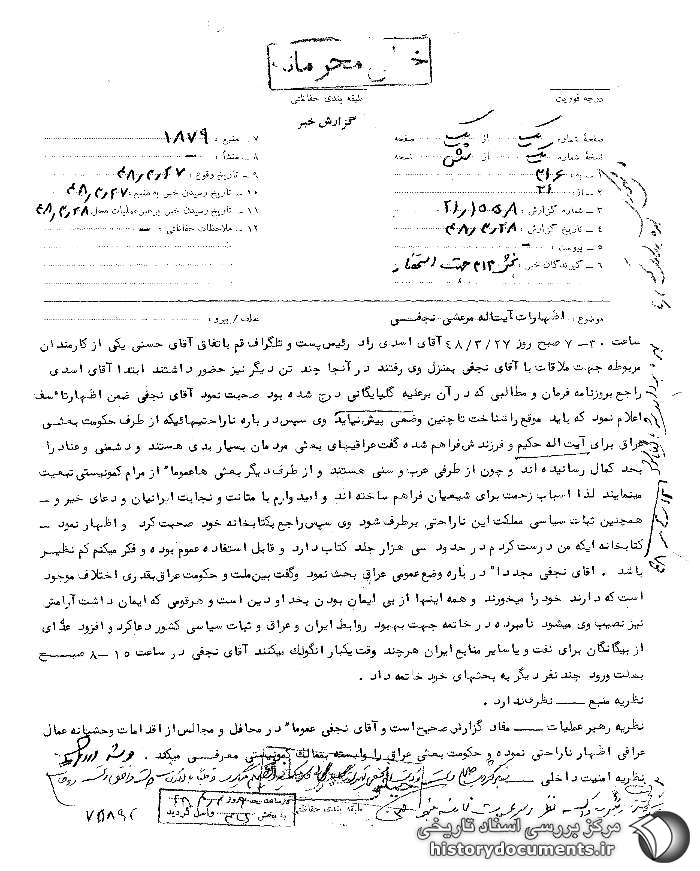 خیلی محرمانه
درجه فوریت
طبقه بندی حفاظتی
گزارش خبر
صفحهٔ شماره یک از یک صفحه
نسخهٔ شماره یک از شش نسخه
۱ ـ به : ۳۱۶
۲ ـ از : ۲۱
۳ ـ شماره گزارش : ۲۱/۱۵۵۸
۴ ـ تاریخ گزارش : ۴۸/۳/۲۸
۵ ـ پیوست : ـ
۶ ـ گیرندگان خبر : بخش ۳۱۲ جهت استحضار
۷ ـ منبع : ۱۸۷۹
۸ ـ منشأ : ـ
۹ ـ تاریخ وقوع : ۴۸/۳/۲۷
۱۰ ـ تاریخ رسیدن خبر به منبع : ۴۸/۳/۲۷
۱۱ ـ تاریخ رسیدن خبر به رهبر عملیات محل : ۴۸/۳/۲۸
۱۲ ـ ملاحظات حفاظتی : ـ
موضوع : اظهارات آیت اله مرعشی نجفی
عطف / پیرو :
ساعت ۳۰ـ۷ صبح روز ۴۸/۳/۲۷ آقای اسدی راد رئیس پست و تلگراف قم باتفاق آقای حسنی یکی از کارمندان
مربوطه جهت ملاقات با آقای نجفی بمنزل وی رفتند در آنجا چند تن دیگر نیز حضور داشتند ابتدا آقای اسدی
راجع بروزنامه فرمان و مطالبی که در آن برعلیه گلپایگانی درج شده بود صحبت نمود آقای نجفی ضمن اظهارتاسف
اعلام نمود که باید موقع را شناخت تا چنین وضعی پیش نیاید وی سپس در باره ناراحتیهائیکه از طرف حکومت بعثی
عراق برای آیت اله حکیم و فرزندش فراهم شده گفت عراقیهای بعثی مردمان بسیار بدی هستند و دشمنی و عناد را
بحد کمال رسانیده اند و چون از طرفی عرب و سنی هستند و از طرف دیگر بعثی ها عموما" از مرام کمونیستی تبعیت
مینمایند لذا اسباب زحمت برای شیعیان فراهم ساخته اند و امیدوارم با متانت و نجابت ایرانیان و دعای خیر و ـ
همچنین ثبات سیاسی مملکت این ناراحتی برطرف شود وی سپس راجع بکتابخانه خود صحبت کرد و اظهار نمود ـ
کتابخانه ایکه من درست کردم در حدود سی هزار جلد کتاب دارد و قابل استفاده عموم بوده و فکر میکنم کم نظیر
باشد . آقای نجفی مجددا" در باره وضع عمومی عراق بحث نمود وگفت بین ملت و حکومت عراق بقدری اختلاف موجود
است که دارند خود را میخورند و همه اینها از بی ایمان بودن بخدا و دین است و هرقومی که ایمان داشت آرامش
نیز نصیب وی میشود نامبرده در خاتمه جهت بهبود روابط ایران و عراق و ثبات سیاسی کشور دعا کرد و افزود عده ای
از بیگانگان برای نفت و یا سایر منابع ایران هرچند وقت یکبار انگولک میکنند آقای نجفی در ساعت ۱۵ـ۸ صبح
بعلت ورود چند نفر دیگر به بحثهای خود خاتمه داد .
نظریه منبع ـــ نظر ندارد .
نظریه رهبر عملیات ـــ مفاد گزارش صحیح است و آقای نجفی عموما" در محافل و مجالس از اقدامات وحشیانه عمال
عراقی اظهار ناراحتی نموده و حکومت بعثی عراق را وابسته بممالک کمونیستی معرفی میکند .
نظریه امنیت داخلی ـــ
طبقه بندی حفاظتی
واصل گردید
۷۵۸۹۲
مرکز بررسی اسناد تاریخی
historydocuments.ir